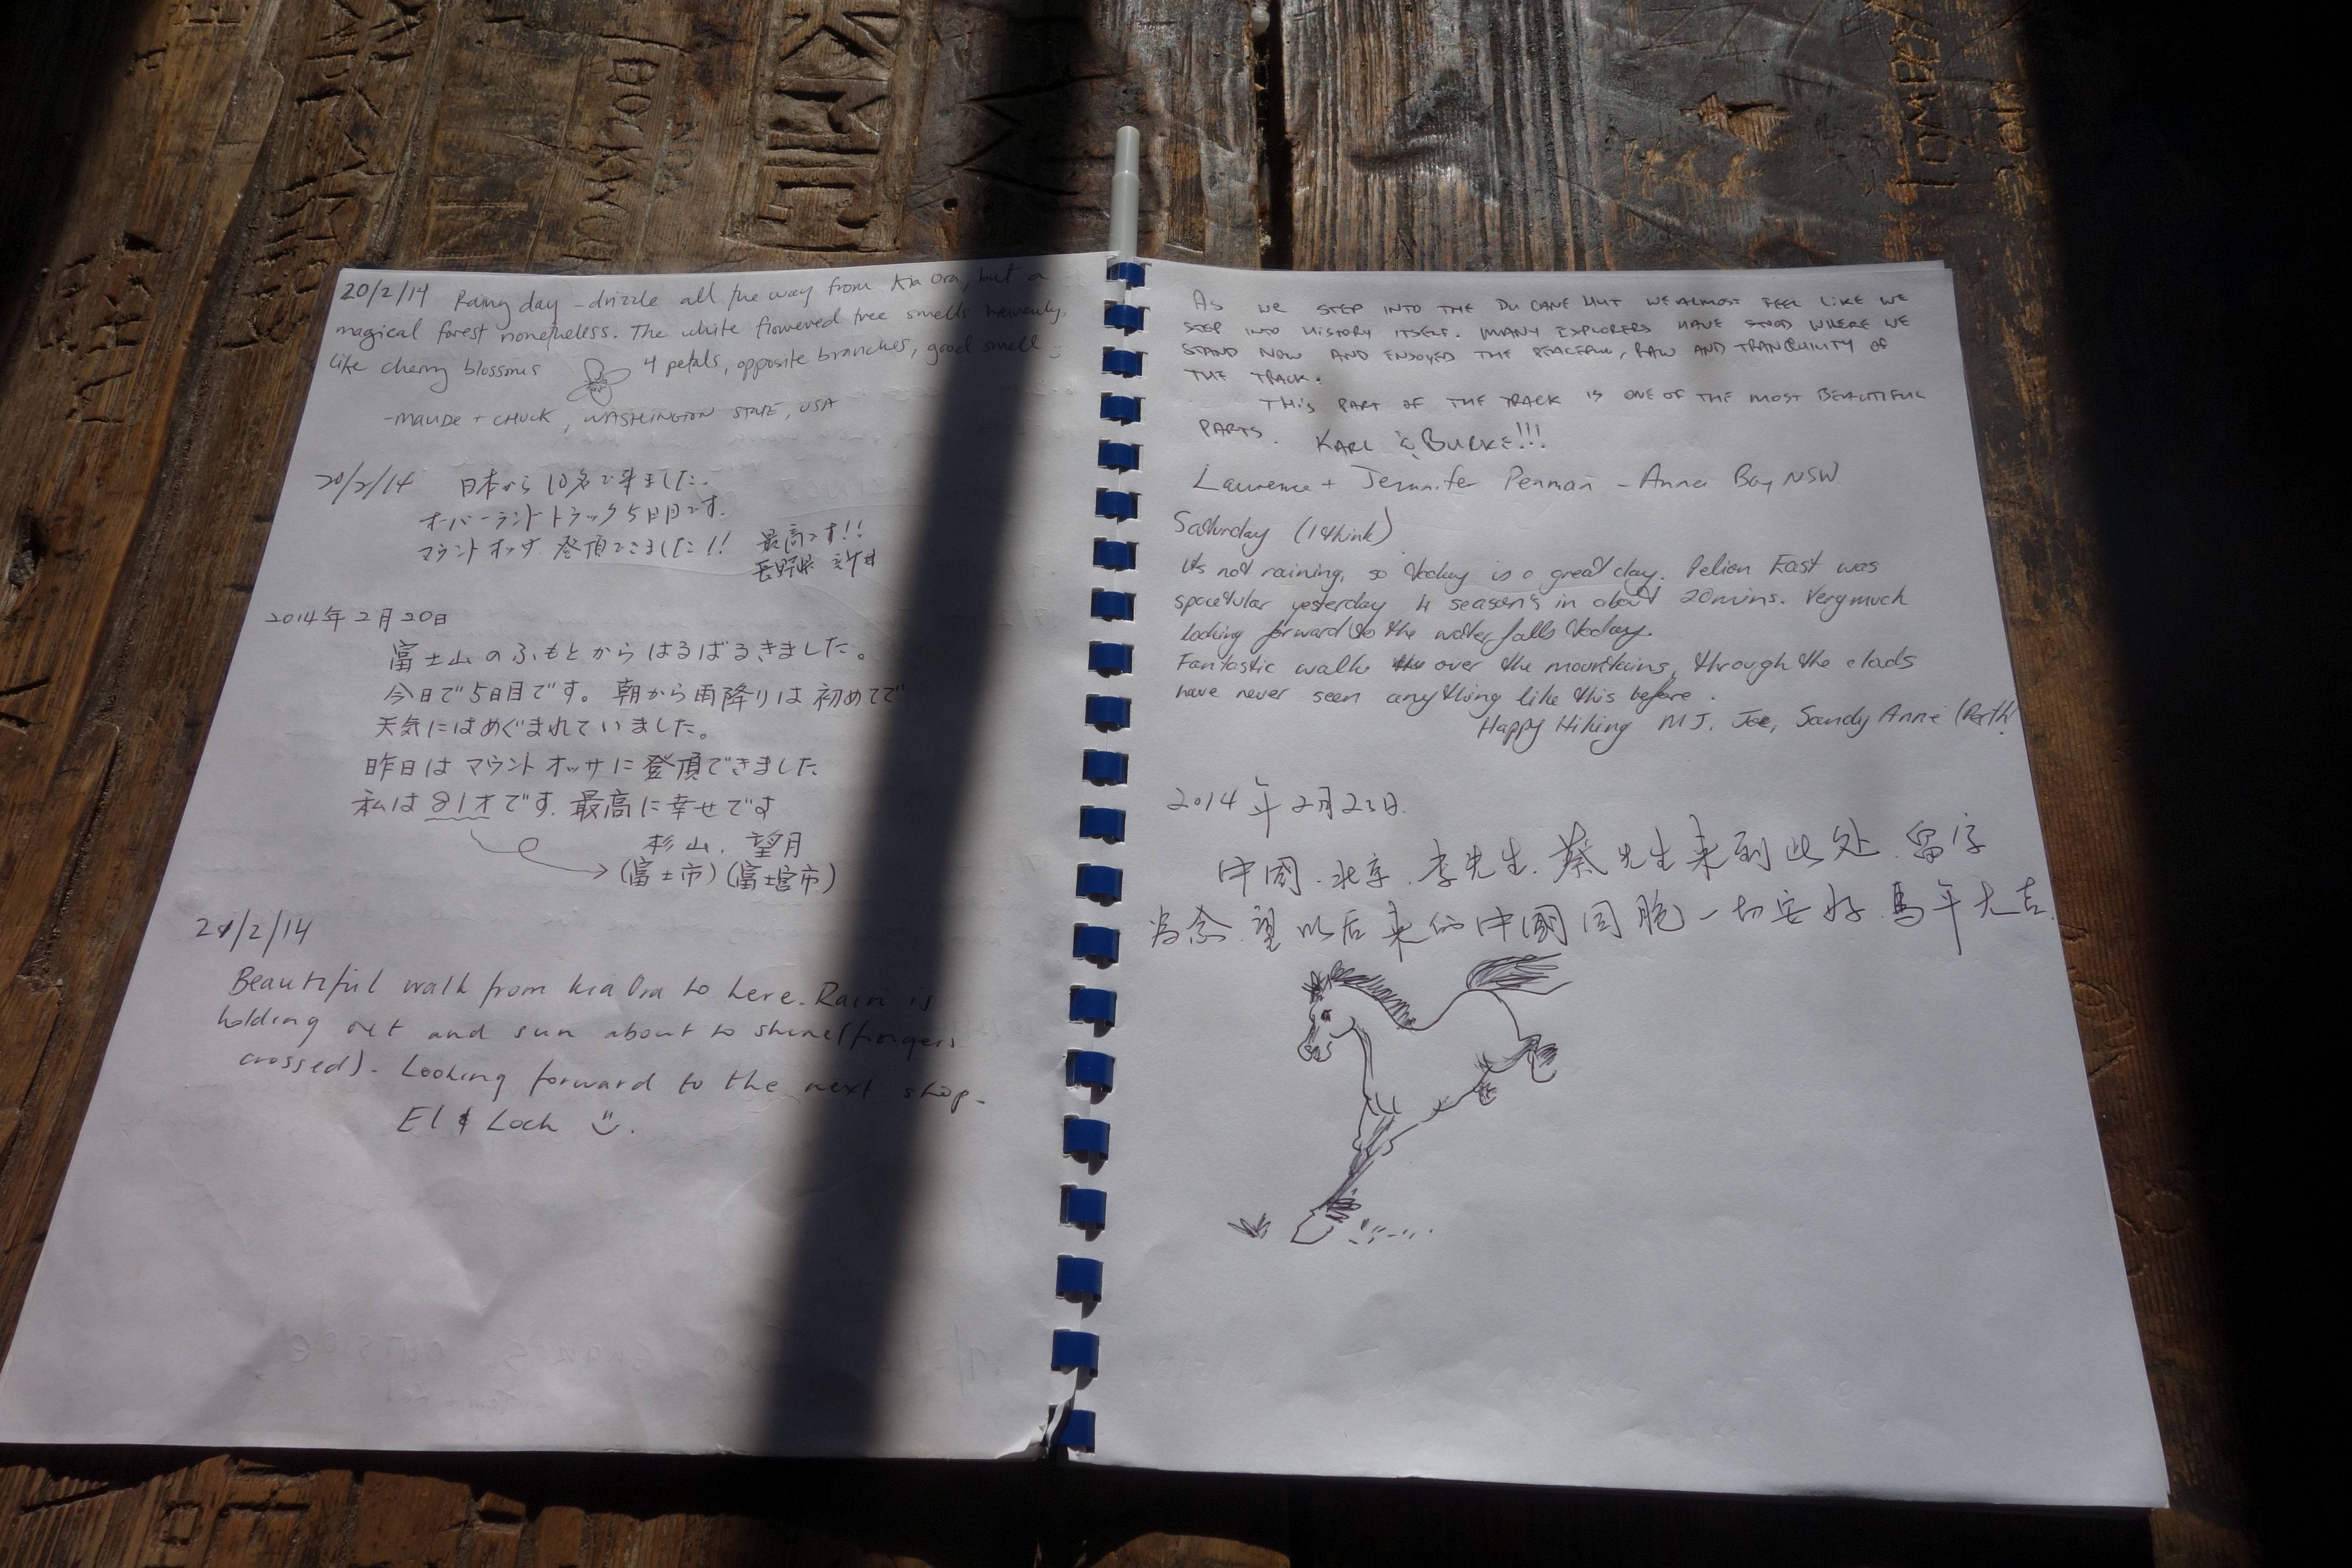 KMC
BOCKMU
20/2/14 Rainy day - drizzle all the way from Kia Ora, but a
magical forest nonetheless. The white flowered tree smells heavenly,
like cherry blossoms 4 petals, opposite branches, good smell :)
- MAUDE + CHUCK, WASHINGTON STATE, USA
20/2/14 日本から10名で来ました。
オーバーランドトラック5日目です。
マウントオッサ 登頂できました!! 最高です!!
長野県
2014年2月20日
富士山のふもとからはるばるきました。
今日で5日目です。朝から雨降りは初めてで
天気にはめぐまれていました。
昨日はマウントオッサに登頂できました
私は81才です。最高に幸せです
杉山、望月
(富士市)(富士宮市)
21/2/14
Beautiful walk from kia Ora to here. Rain is
holding out and sun about to shine (fingers
crossed). Looking forward to the next stop.
El & Loch
AS WE STEP INTO THE DU CANE HUT WE ALMOST FEEL LIKE WE
STEP INTO HISTORY ITSELF. MANY EXPLORERS HAVE STOOD WHERE WE
STAND NOW AND ENJOYED THE PEACEFUL, RAW AND TRANQUILITY OF
THE TRACK.
THIS PART OF THE TRACK IS ONE OF THE MOST BEAUTIFUL
PARTS. KARL & BURKE!!!
Laurence + Jennifer Penman - Anna Bay NSW
Saturday (I think)
Its not raining, so today is a great day. Pelion East was
spactular yesterday 4 season's in about 20mins. Very much
looking forward to the water falls today.
Fantastic walk over the mountains, through the clods
have never seen anything like this before.
Happy Hiking MJ, Joe, Sandy Anne (Perth)
2014年2月23日.
中國.北京.李先生.蔡先生来到此处.留字
为念.望以后来的中國同胞一切安好.馬年大吉.